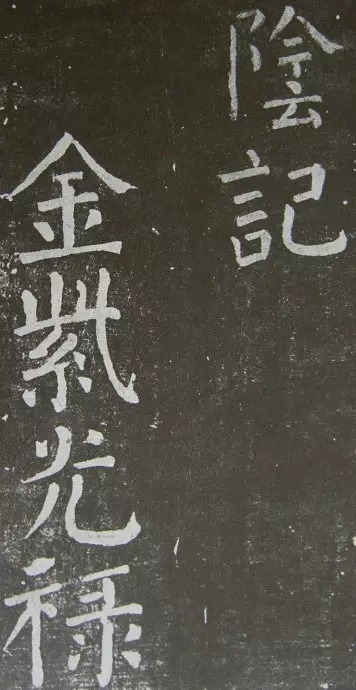 陰記
金紫光禄